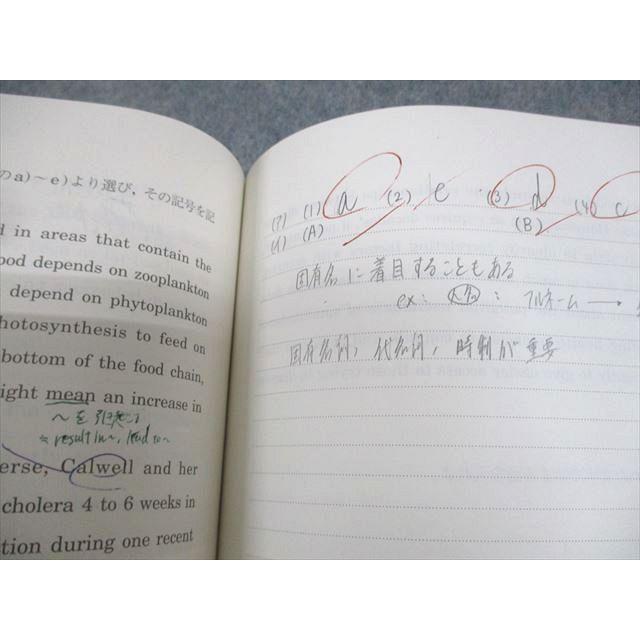 のa)~e)より選び,その記号を記
d in areas that contain the
ood depends on zooplankton
depend on phytoplankton
hotosynthesis to feed on
bottom of the food chain,
ight mean an increase in
~を引き起こす
≒ result in~, lead to~
erse, Calwell and her
cholera 4 to 6 weeks in
tion during one recent
(ア) (1) a (2) e (3) d (4) c
(イ) (A) (B)
固有名に着目することもある
ex: 人名 : フルネーム →
固有名詞, 代名詞, 時制が重要